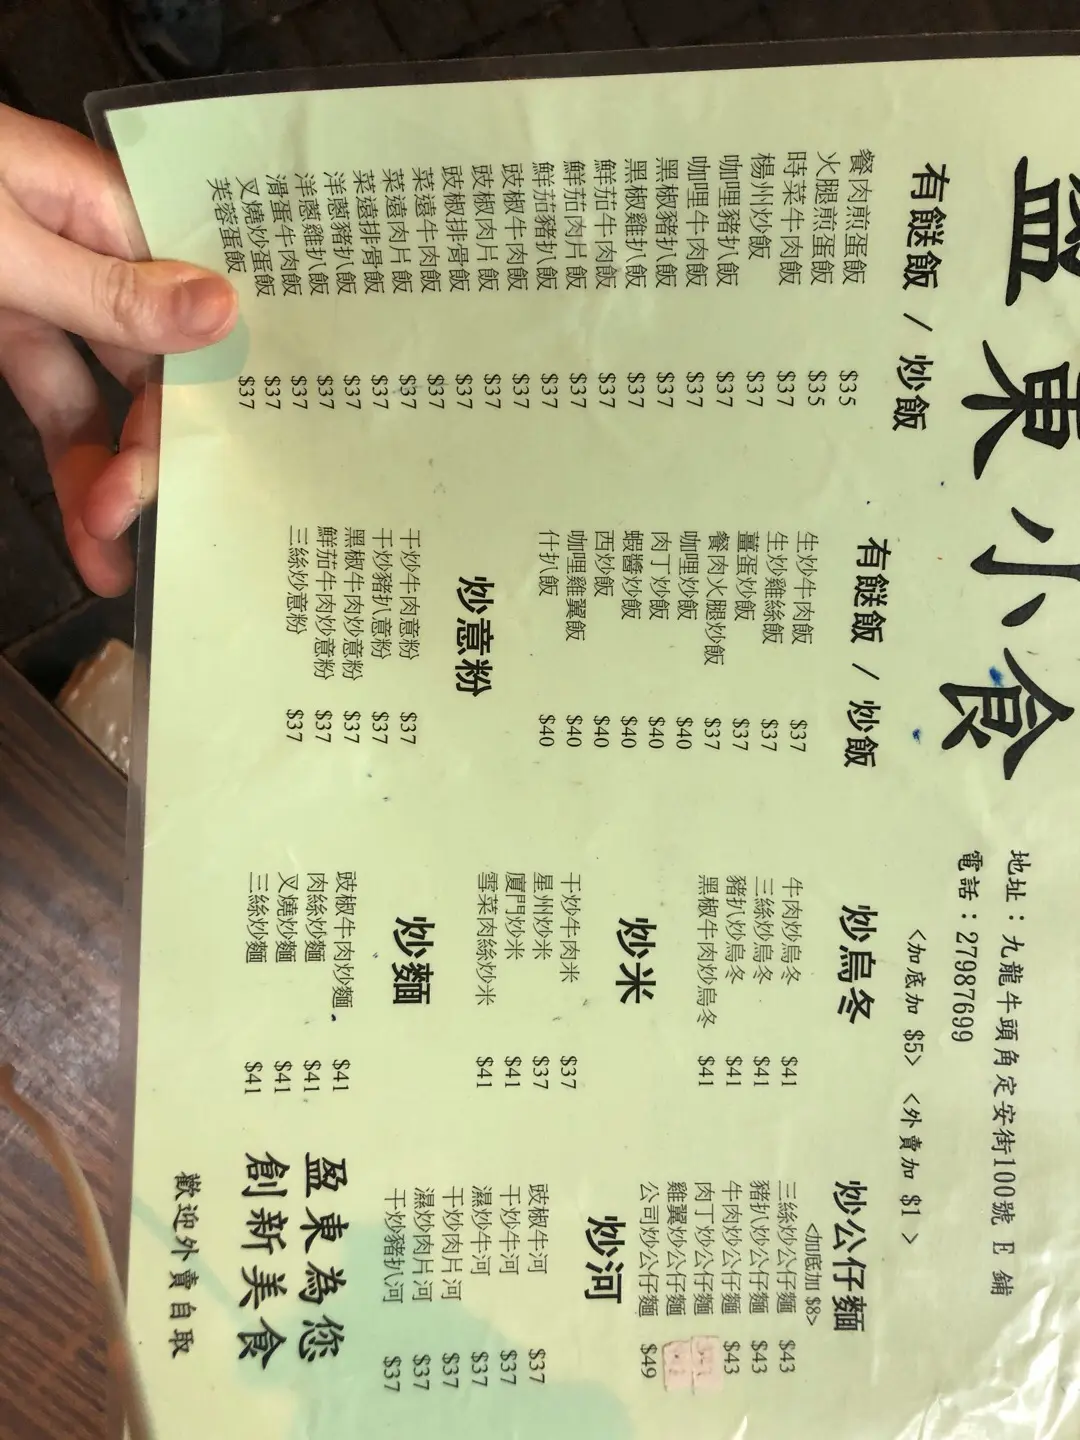 盈東小食
地址：九龍牛頭角定安街100號 E 鋪
電話：27987699
<加底加 $5> <外賣加 $1 >
有餸飯 / 炒飯
餐肉煎蛋飯 $35
火腿煎蛋飯 $35
時菜牛肉飯 $37
楊州炒飯 $37
咖哩豬扒飯 $37
咖哩牛肉飯 $37
黑椒豬扒飯 $37
黑椒雞扒飯 $37
鮮茄牛肉飯 $37
鮮茄肉片飯 $37
鮮茄豬扒飯 $37
豉椒牛肉飯 $37
豉椒肉片飯 $37
豉椒排骨飯 $37
菜遠牛肉飯 $37
菜遠肉片飯 $37
菜遠排骨飯 $37
洋蔥豬扒飯 $37
洋蔥雞扒飯 $37
滑蛋牛肉飯 $37
叉燒炒蛋飯 $37
芙蓉蛋飯 $37
有餸飯 / 炒飯
生炒牛肉飯 $37
生炒雞絲飯 $37
薑蛋炒飯 $37
餐肉火腿炒飯 $37
咖哩炒飯 $40
肉丁炒飯 $40
蝦醬炒飯 $40
西炒飯 $40
咖哩雞翼飯 $40
什扒飯 $40
炒意粉
干炒牛肉意粉 $37
干炒豬扒意粉 $37
黑椒牛肉炒意粉 $37
鮮茄牛肉炒意粉 $37
三絲炒意粉 $37
炒烏冬
牛肉炒烏冬 $41
三絲炒烏冬 $41
豬扒炒烏冬 $41
黑椒牛肉炒烏冬 $41
炒米
干炒牛肉米 $37
星州炒米 $37
廈門炒米 $41
雪菜肉絲炒米 $41
炒麵
豉椒牛肉炒麵 $41
肉絲炒麵 $41
叉燒炒麵 $41
三絲炒麵 $41
炒公仔麵
<加底加 $8>
三絲炒公仔麵 $43
豬扒炒公仔麵 $43
牛肉炒公仔麵 $43
肉丁炒公仔麵
雞翼炒公仔麵
公司炒公仔麵 $49
炒河
豉椒牛河 $37
干炒牛河 $37
濕炒牛河 $37
干炒肉片河 $37
濕炒肉片河 $37
干炒豬扒河 $37
盈東為您
創新美食
歡迎外賣自取